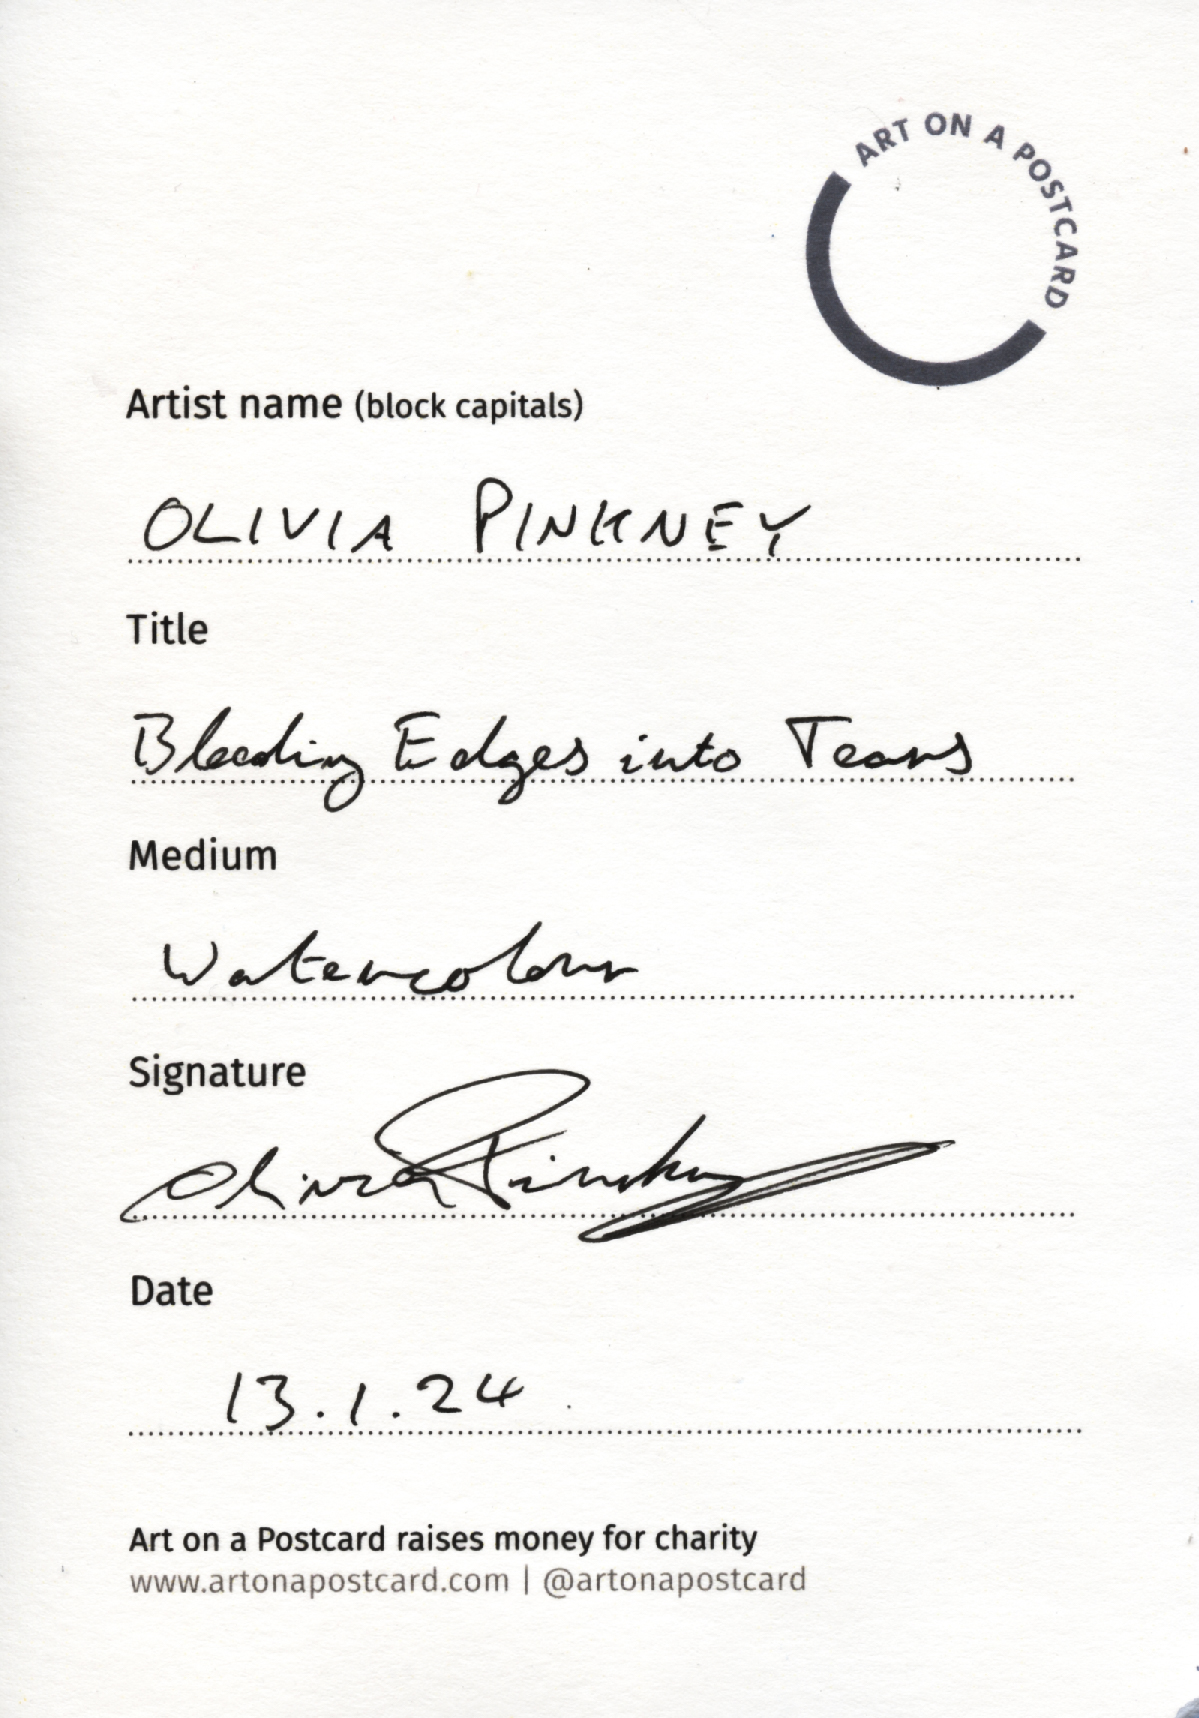 ART ON A POSTCARD
Artist name (block capitals)
OLIVIA PINKNEY
Title
Bleeding Edges into Tears
Medium
Watercolour
Signature
Olivia Pinkney
Date
13.1.24
Art on a Postcard raises money for charity
www.artonapostcard.com | @artonapostcard